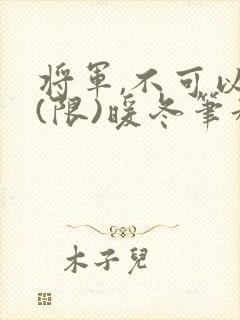 將軍,不可以
(限)暖冬筆
木子兒